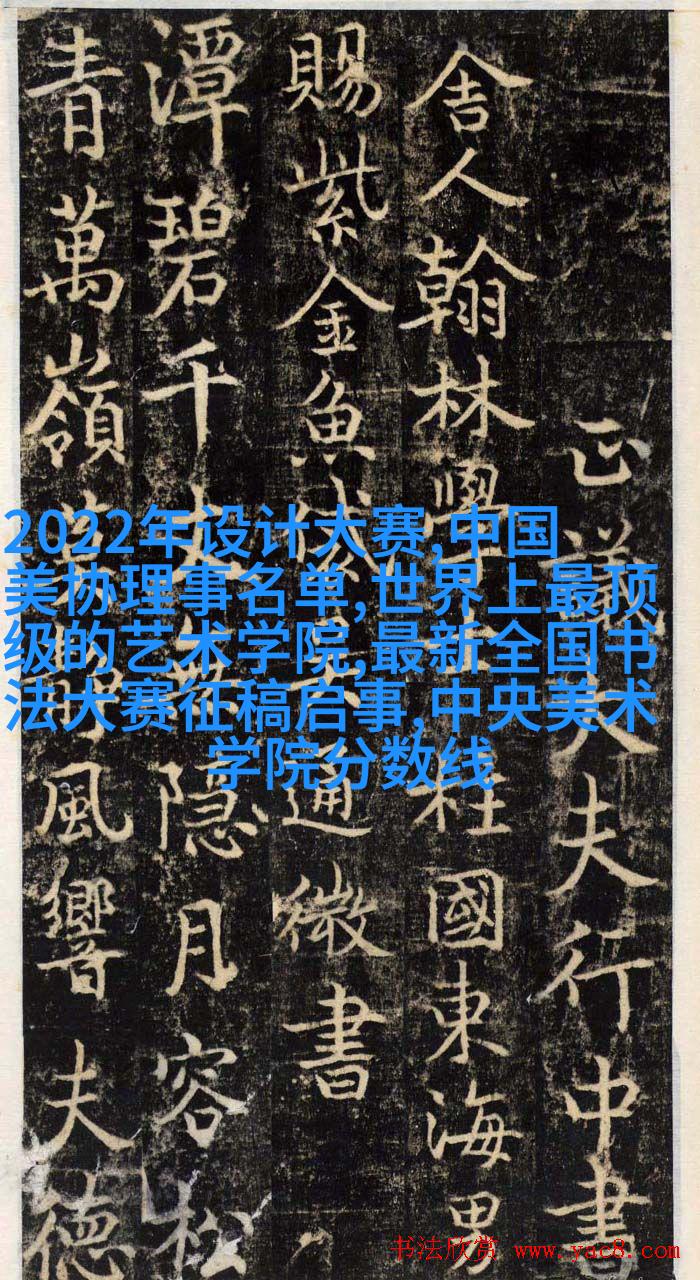 正議大夫行中書
舍人翰林學士柱國東海男
賜紫金魚袋吳通微書
潭碧千丈隱月容松
青萬嶺風響夫德
2022年设计大赛,中国
美协理事名单,世界上最顶
级的艺术学院,最新全国书
法大赛征稿启事,中央美术
学院分数线
书法欣赏 www.yac8.com